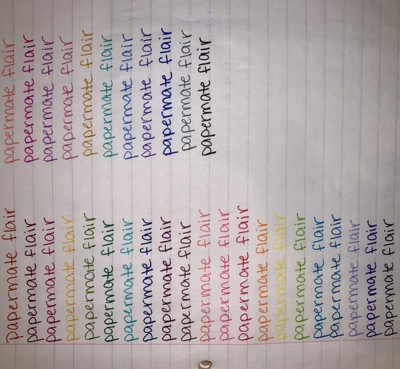 papermate flair
papermate flair
papermate flair
papermate flair
papermate flair
papermate flair
papermate flair
papermate flair
papermate flair
papermate flair
papermate flair
papermate flair
papermate flair
papermate flair
papermate flair
papermate flair
papermate flair
papermate flair
papermate flair
papermate flair
papermate flair
papermate flair
papermate flair
papermate flair
papermate flair
papermate flair
papermate flair
papermate flair
papermate flair
papermate flair
papermate flair
papermate flair